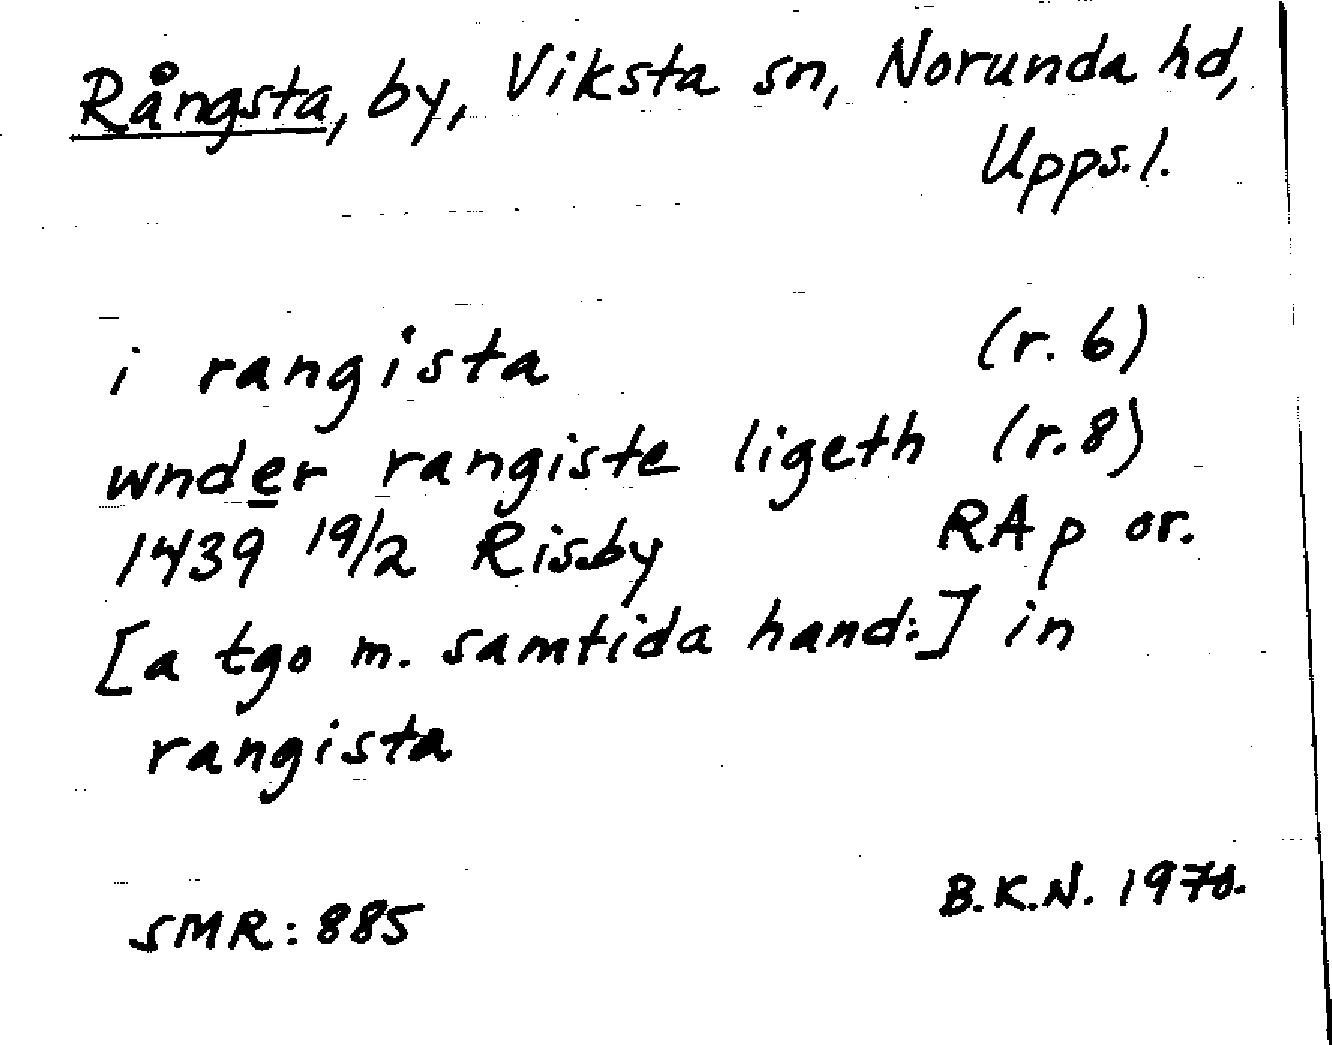 Rångsta, by, Viksta sn, Norunda hd,
Upps. l.
i rangista (r. 6)
wnder rangiste ligeth (r. 8)
1439 19/2 Risby RA p or.
[a tgo m. samtida hand:] in
rangista
SMR: 885 B.K.N. 1970.